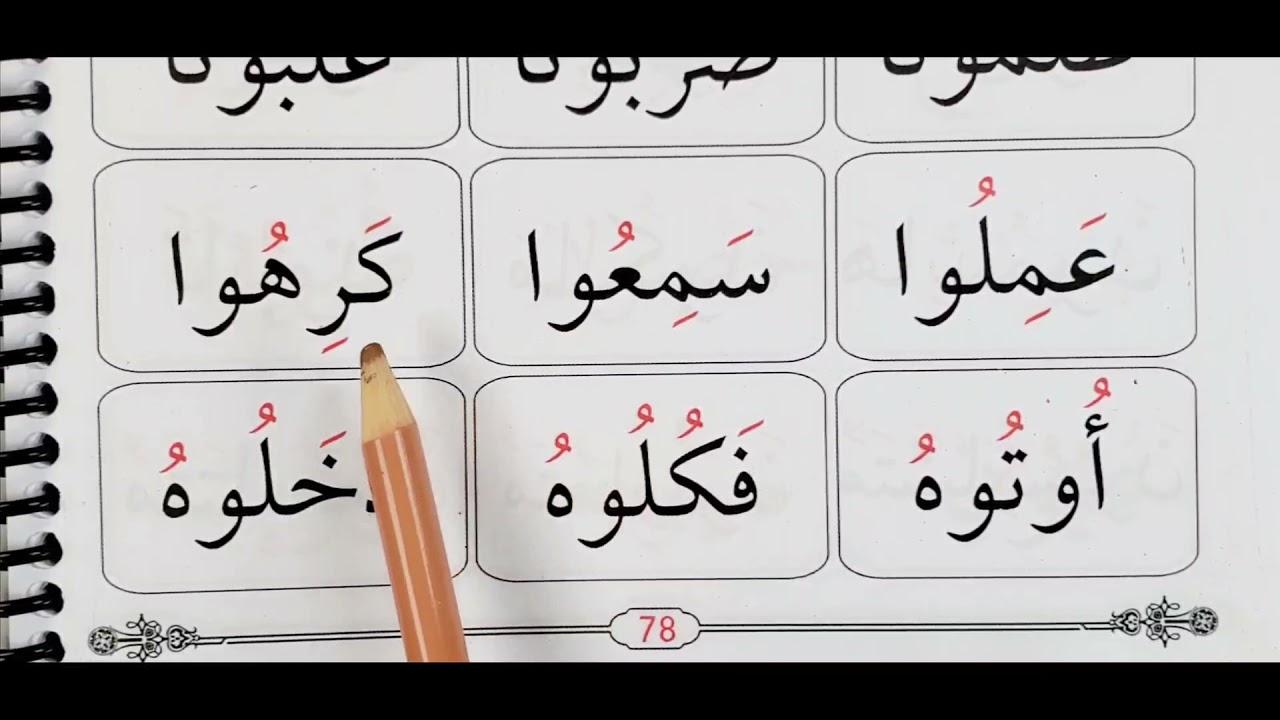 عَمِلُوا سَمِعُوا كَرِهُوا
أُوتُوهُ فَكُلُوهُ دَخَلُوهُ
78